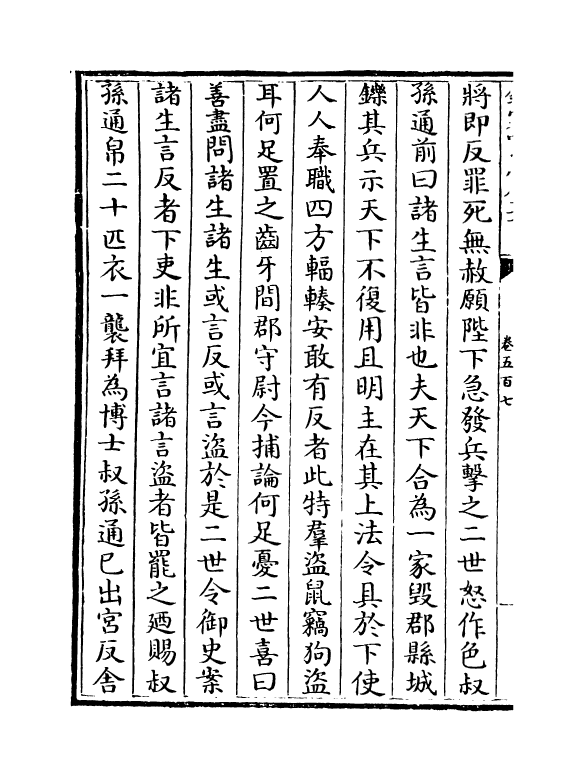 卷五百七
將即反罪死無赦願陛下急發兵擊之二世怒作色叔
孫通前曰諸生言皆非也夫天下合為一家毀郡縣城
鑠其兵示天下不復用且明主在其上法令具於下使
人人奉職四方輻輳安敢有反者此特羣盜鼠竊狗盜
耳何足置之齒牙間郡守尉今捕論何足憂二世喜曰
善盡問諸生諸生或言反或言盜於是二世令御史案
諸生言反者下吏非所宜言諸言盜者皆罷之廼賜叔
孫通帛二十匹衣一襲拜為博士叔孫通已出宮反舍